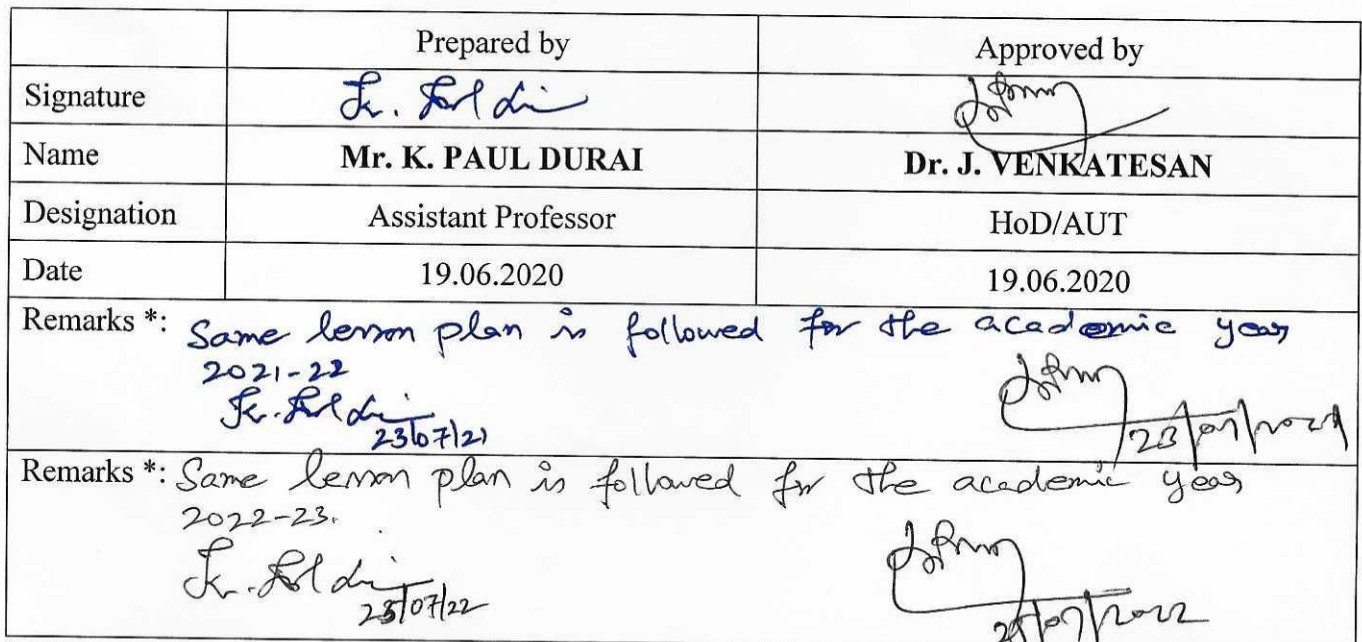 Prepared by Approved by
Signature K. Paul Durai
Name Mr. K. PAUL DURAI Dr. J. VENKATESAN
Designation Assistant Professor HoD/AUT
Date 19.06.2020 19.06.2020
Remarks *: Same lesson plan is followed for the academic year
2021-22
K. Paul Durai
23/07/21 23/07/2021
Remarks *: Same lesson plan is followed for the academic year
2022-23.
K. Paul Durai
/07/22 /07/2022